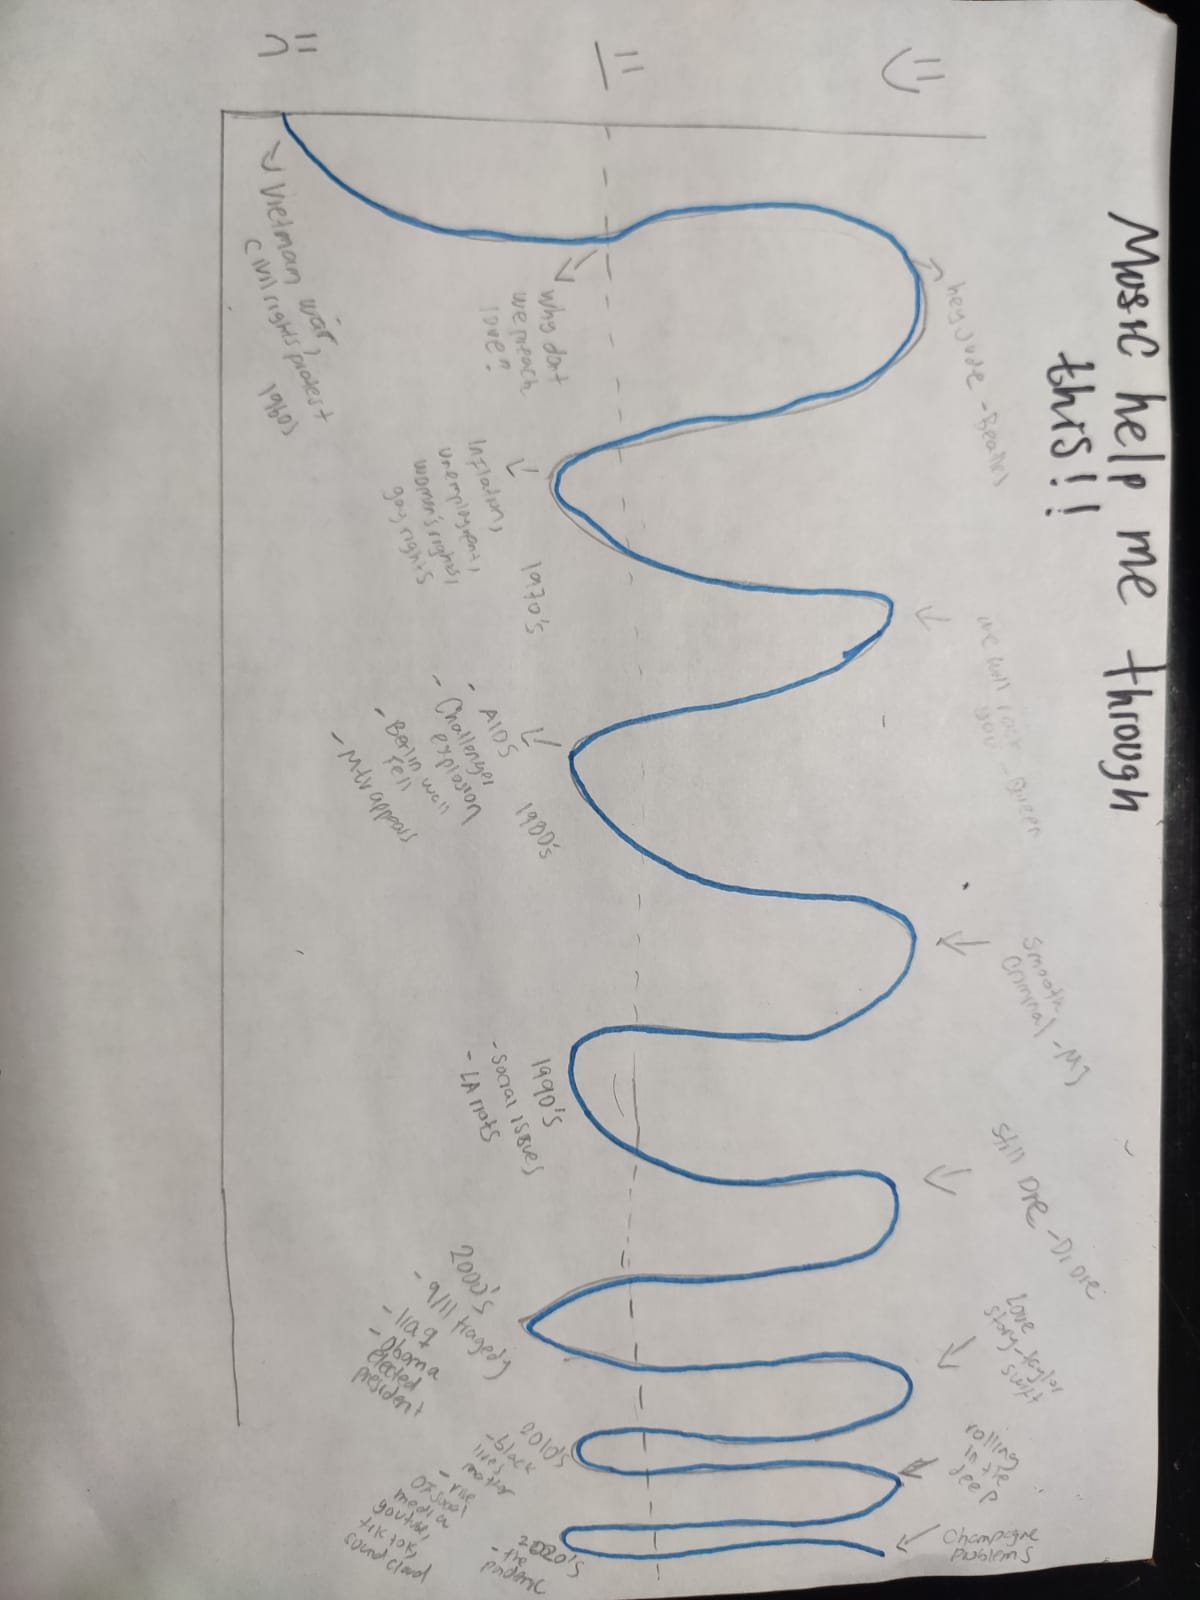 Music help me through
this!!
hey Jude - Beatles
we will rock
you - Queen
Smooth
Criminal - MJ
Still Dre - Dr Dre
Love
story - taylor
swift
rolling
in the
deep
Champagne
Problems
Why don't
we preach
love?
Inflation,
unemployment,
women's rights,
gay rights
1970's
- AIDS
- Challenger
explosion
- Berlin wall
fell
- Mtv appears
1980's
1990's
- Social issues
- LA riots
2000's
- 9/11 tragedy
- Iraq
- Obama
elected
president
2010's
- black
lives
matter
- rise
of social
media
tiktok,
sound cloud
2020's
- the
Vietnam war,
Civil rights protest
1960s